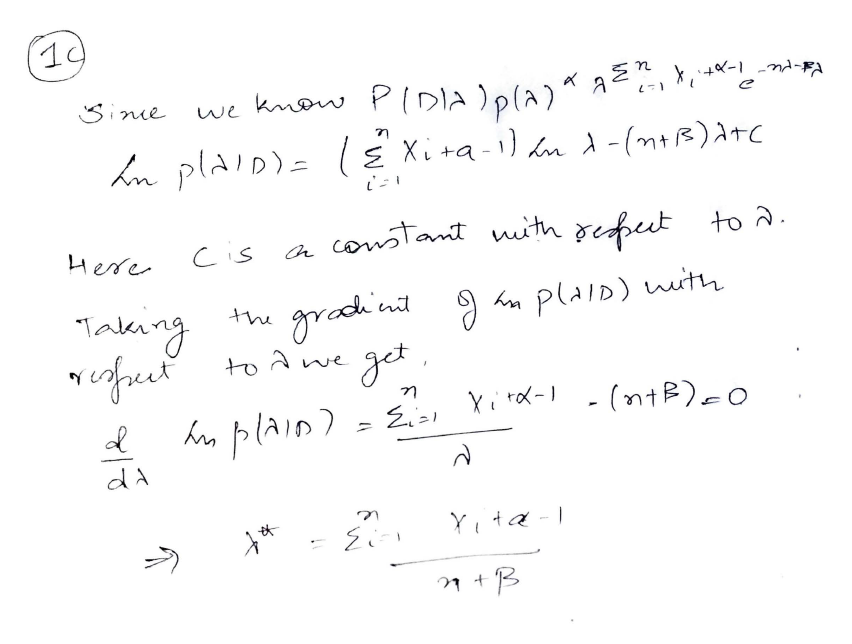 1c
Since we know P(D|λ)p(λ) ∝ λ^{Σ_{i=1}^{n} X_i+α-1} e^{-nλ-βλ}
ln p(λ|D) = (Σ_{i=1}^{n} X_i+α-1) ln λ-(n+β)λ+C
Here C is a constant with respect to λ.
Taking the gradient of ln p(λ|D) with
respect to λ we get,
d/dλ ln p(λ|D) = (Σ_{i=1}^{n} X_i+α-1)/λ - (n+β)=0
⇒ λ* = (Σ_{i=1}^{n} X_i+α-1)/(n+β)